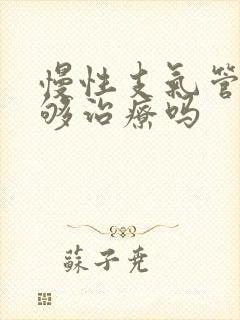 慢性支氣管
够治療吗
蘇子尭